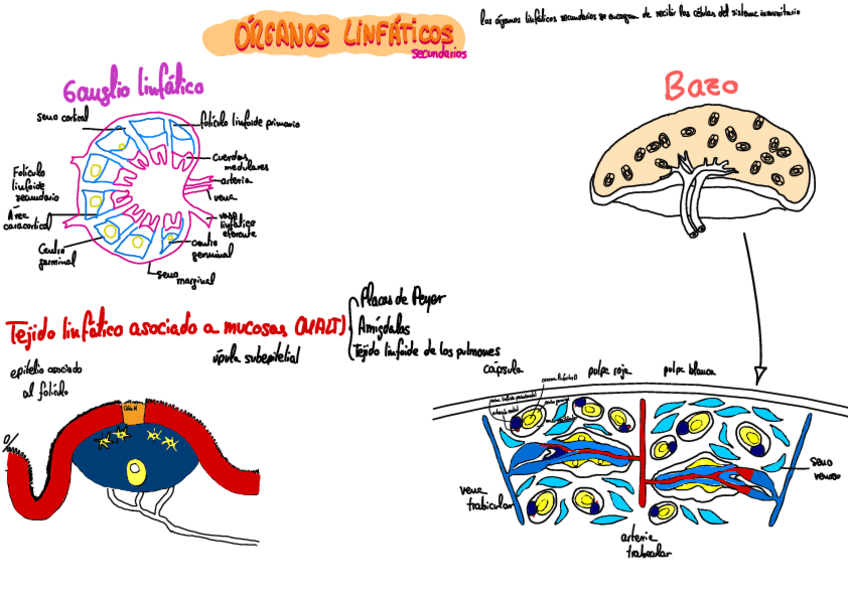 ÓRGANOS LINFÁTICOS
secundarios
Los órganos linfáticos secundarios se encargan de recibir las células del sistema inmunitario
Ganglio linfático
seno cortical
folículo linfoide primario
cuerdas
medulares
arteria
vena
vaso
linfático
eferente
centro
germinal
seno
marginal
Folículo
linfoide
secundario
Área
Centro
germinal
Bazo
Tejido linfático asociado a mucosas (MALT)
Placas de Peyer
Amígdalas
Tejido linfoide de los pulmones
epitelio asociado
al folículo
cápsula
pulpa roja
pulpa blanca
vena
trabicular
arteria
trabecular
seno
venoso